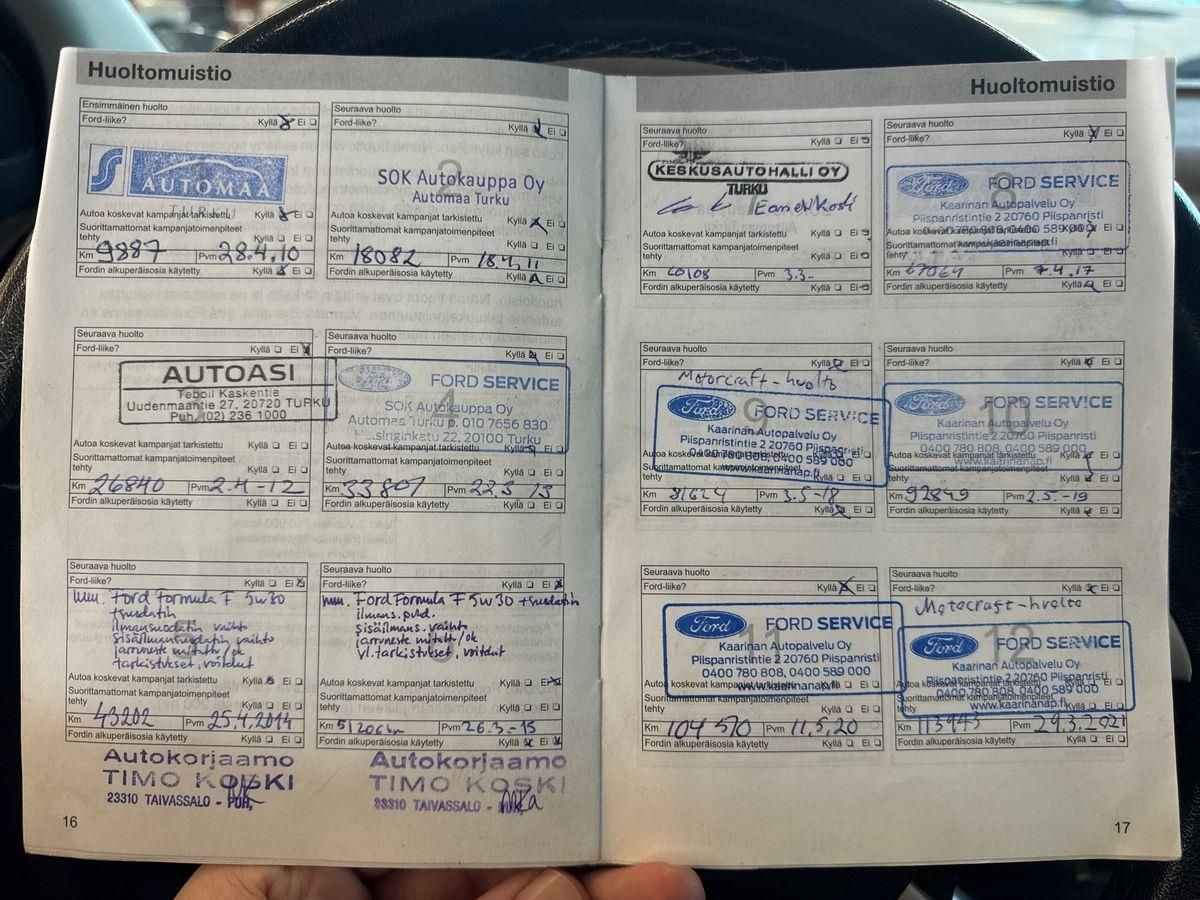 Huoltomuistio
Ensimmäinen huolto
Ford-liike? Kyllä Ei
AUTOMAA
TURKU
Autoa koskevat kampanjat tarkistettu Kyllä Ei
Suorittamattomat kampanjatoimenpiteet
tehty Kyllä Ei
Km 9887 Pvm 28.4.10
Fordin alkuperäisosia käytetty Kyllä Ei
Seuraava huolto
Ford-liike? Kyllä Ei
2
SOK Autokauppa Oy
Automaa Turku
Autoa koskevat kampanjat tarkistettu Kyllä Ei
Suorittamattomat kampanjatoimenpiteet
tehty Kyllä Ei
Km 18082 Pvm 18.4.11
Fordin alkuperäisosia käytetty Kyllä Ei
Seuraava huolto
Ford-liike? Kyllä Ei
AUTOASI
Teboil Kaskentie
Uudenmaantie 27, 20720 TURKU
Puh. (02) 236 1000
Autoa koskevat kampanjat tarkistettu Kyllä Ei
Suorittamattomat kampanjatoimenpiteet
tehty Kyllä Ei
Km 26840 Pvm 2.4-12
Fordin alkuperäisosia käytetty Kyllä Ei
Seuraava huolto
Ford-liike? Kyllä Ei
4
Ford FORD SERVICE
SOK Autokauppa Oy
Automaa Turku p. 010 7656 830
22, 20100 Turku
Autoa koskevat kampanjat tarkistettu Kyllä Ei
Suorittamattomat kampanjatoimenpiteet
tehty Kyllä Ei
Km 33807 Pvm 22.3 13
Fordin alkuperäisosia käytetty Kyllä Ei
Seuraava huolto
Ford-liike? Kyllä Ei
Ford Formula F 5w30
+suodatin
ilmansuodatin vaihto
sisäilmansuodatin vaihto
jarruneste mitattu/ok
tarkistukset, voitelut
Autoa koskevat kampanjat tarkistettu Kyllä Ei
Suorittamattomat kampanjatoimenpiteet
tehty Kyllä Ei
Km 43202 Pvm 25.4.2014
Fordin alkuperäisosia käytetty Kyllä Ei
Autokorjaamo
TIMO KOSKI
23310 TAIVASSALO - PUH.
Seuraava huolto
Ford-liike? Kyllä Ei
Ford Formula F 5w30 +suodatin
ilmans. puhd.
sisäilmans. vaihto
jarruneste mitattu/ok
yl. tarkistukset, voitelut
Autoa koskevat kampanjat tarkistettu Kyllä Ei
Suorittamattomat kampanjatoimenpiteet
tehty Kyllä Ei
Km 51206km Pvm 26.3.-15
Fordin alkuperäisosia käytetty Kyllä Ei
Autokorjaamo
TIMO KOSKI
23310 TAIVASSALO -
16
Huoltomuistio
Seuraava huolto
Ford-liike? Kyllä Ei
KESKUSAUTOHALLI OY
TURKU
Autoa koskevat kampanjat tarkistettu Kyllä Ei
Suorittamattomat kampanjatoimenpiteet
tehty Kyllä Ei
Km 60108 Pvm 3.3.-
Fordin alkuperäisosia käytetty Kyllä Ei
Seuraava huolto
Ford-liike? Kyllä Ei
8
Ford FORD SERVICE
Kaarinan Autopalvelu Oy
Piispanristintie 2 20760 Piispanristi
Autoa koskevat kampanjat tarkistettu Kyllä Ei
Suorittamattomat kampanjatoimenpiteet
tehty Kyllä Ei
Km 67064 Pvm 7.4.17
Fordin alkuperäisosia käytetty Kyllä Ei
Seuraava huolto
Ford-liike? Kyllä Ei
Motorcraft-huolto
9
Ford FORD SERVICE
Kaarinan Autopalvelu Oy
Piispanristintie 2 20760 Piispanristi
0400 780 808, 0400 589 000
www.kaarinanap.fi
Autoa koskevat kampanjat tarkistettu Kyllä Ei
Suorittamattomat kampanjatoimenpiteet
tehty Kyllä Ei
Km 81624 Pvm 3.5-18
Fordin alkuperäisosia käytetty Kyllä Ei
Seuraava huolto
Ford-liike? Kyllä Ei
10
Ford FORD SERVICE
Kaarinan Autopalvelu Oy
Piispanristintie 2 20760 Piispanristi
0400 780 808, 0400 589 000
www.kaarinanap.fi
Autoa koskevat kampanjat tarkistettu Kyllä Ei
Suorittamattomat kampanjatoimenpiteet
tehty Kyllä Ei
Km 92849 Pvm 2.5.-19
Fordin alkuperäisosia käytetty Kyllä Ei
Seuraava huolto
Ford-liike? Kyllä Ei
11
Ford FORD SERVICE
Kaarinan Autopalvelu Oy
Piispanristintie 2 20760 Piispanristi
0400 780 808, 0400 589 000
www.kaarinanap.fi
Autoa koskevat kampanjat tarkistettu Kyllä Ei
Suorittamattomat kampanjatoimenpiteet
tehty Kyllä Ei
Km 104570 Pvm 11.5.20
Fordin alkuperäisosia käytetty Kyllä Ei
Seuraava huolto
Ford-liike? Kyllä Ei
Motocraft-huolto
12
Ford FORD SERVICE
Kaarinan Autopalvelu Oy
Piispanristintie 2 20760 Piispanristi
0400 780 808, 0400 589 000
www.kaarinanap.fi
Autoa koskevat kampanjat tarkistettu Kyllä Ei
Suorittamattomat kampanjatoimenpiteet
tehty Kyllä Ei
Km 113943 Pvm 29.3.2021
Fordin alkuperäisosia käytetty Kyllä Ei
17